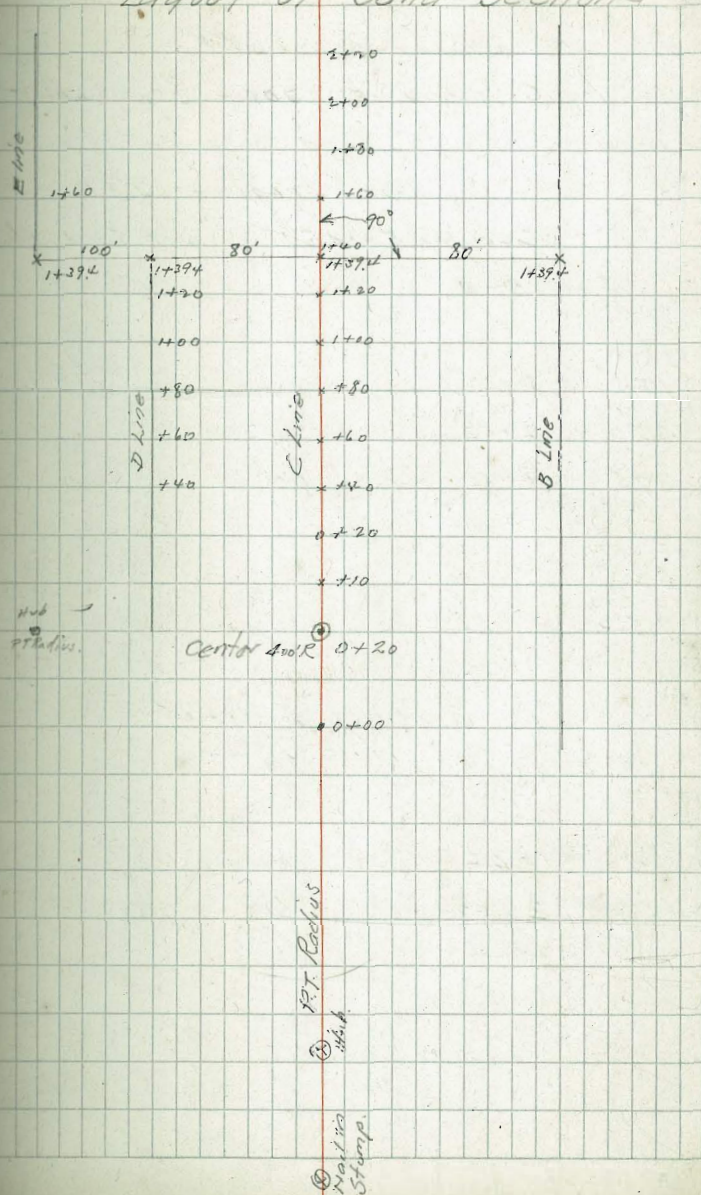 Layout of
2+20
2+00
1+80
E Line
1+60
1+60
90°
100'
80'
1+40
80'
1+39.4
1+394
1+39.4
1+39.4
1+20
1+20
1+00
1+00
+80
+80
D Line
C Line
B Line
+60
+60
+40
+20
+10
Hub
PT Radius.
Center 400'R 0+20
0+00
P.T. Radius
Hub
Nail in
Stump.